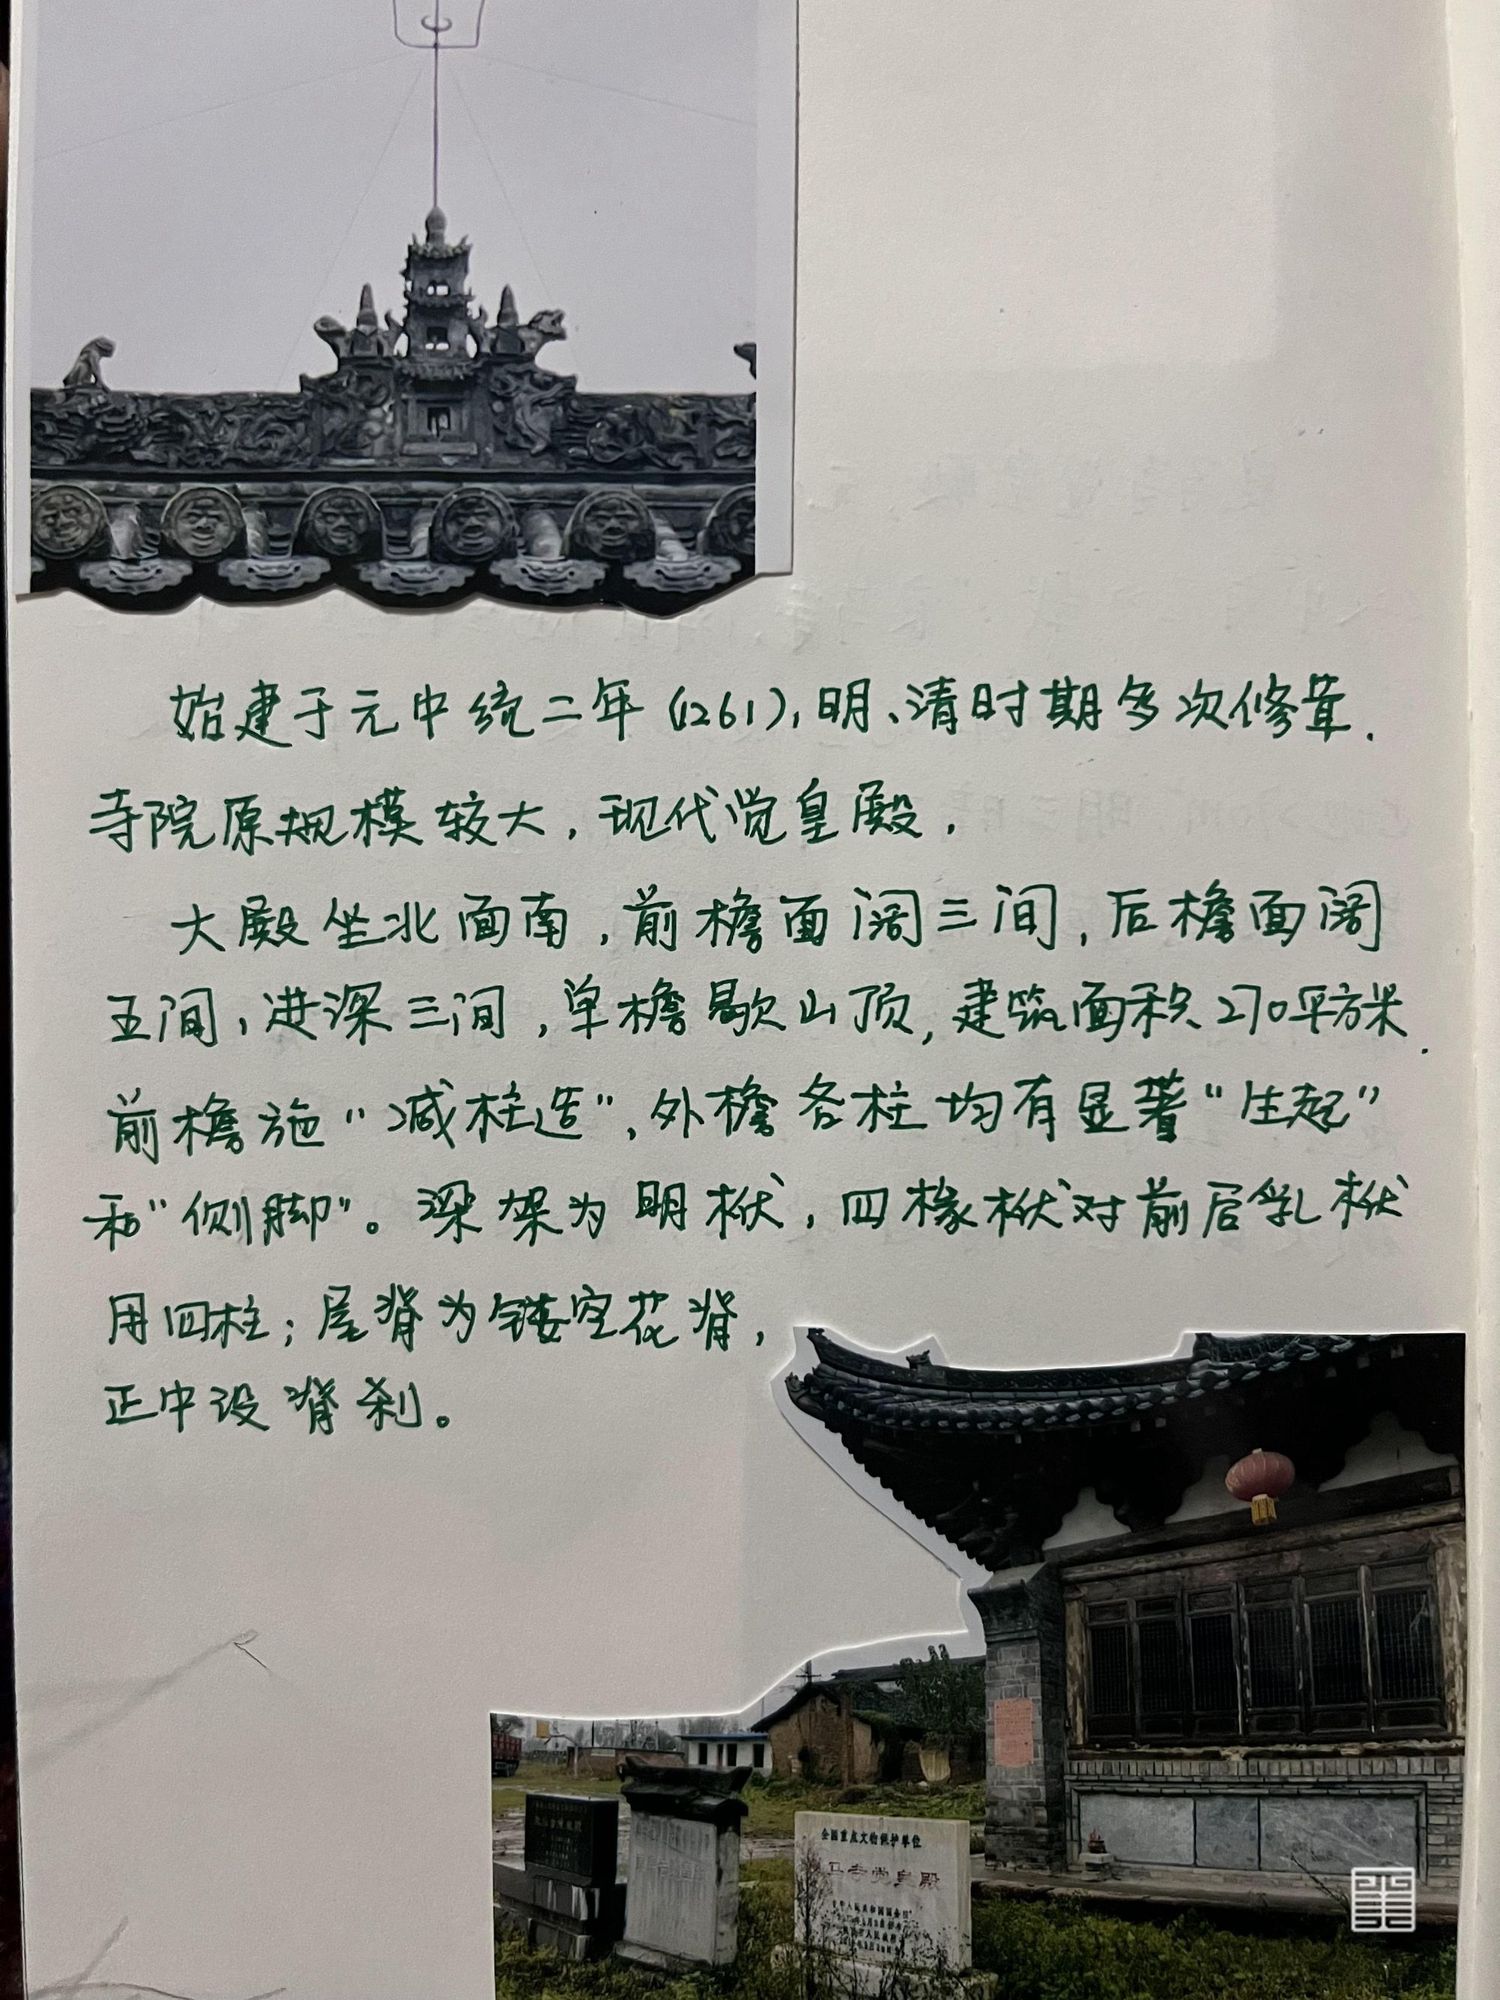 始建于元中统二年(1261),明、清时期多次修葺.
寺院原规模较大,现代觉皇殿.
大殿坐北面南,前檐面阔三间,后檐面阔
五间,进深三间,单檐歇山顶,建筑面积270平方米.
前檐施“减柱造”,外檐各柱均有显著“生起”
和“侧脚”。深架为明栿,四椽栿对前后乳栿
用四柱;屋脊为镂空花脊,
正中设脊刹。
全国重点文物保护单位
寺觉皇殿